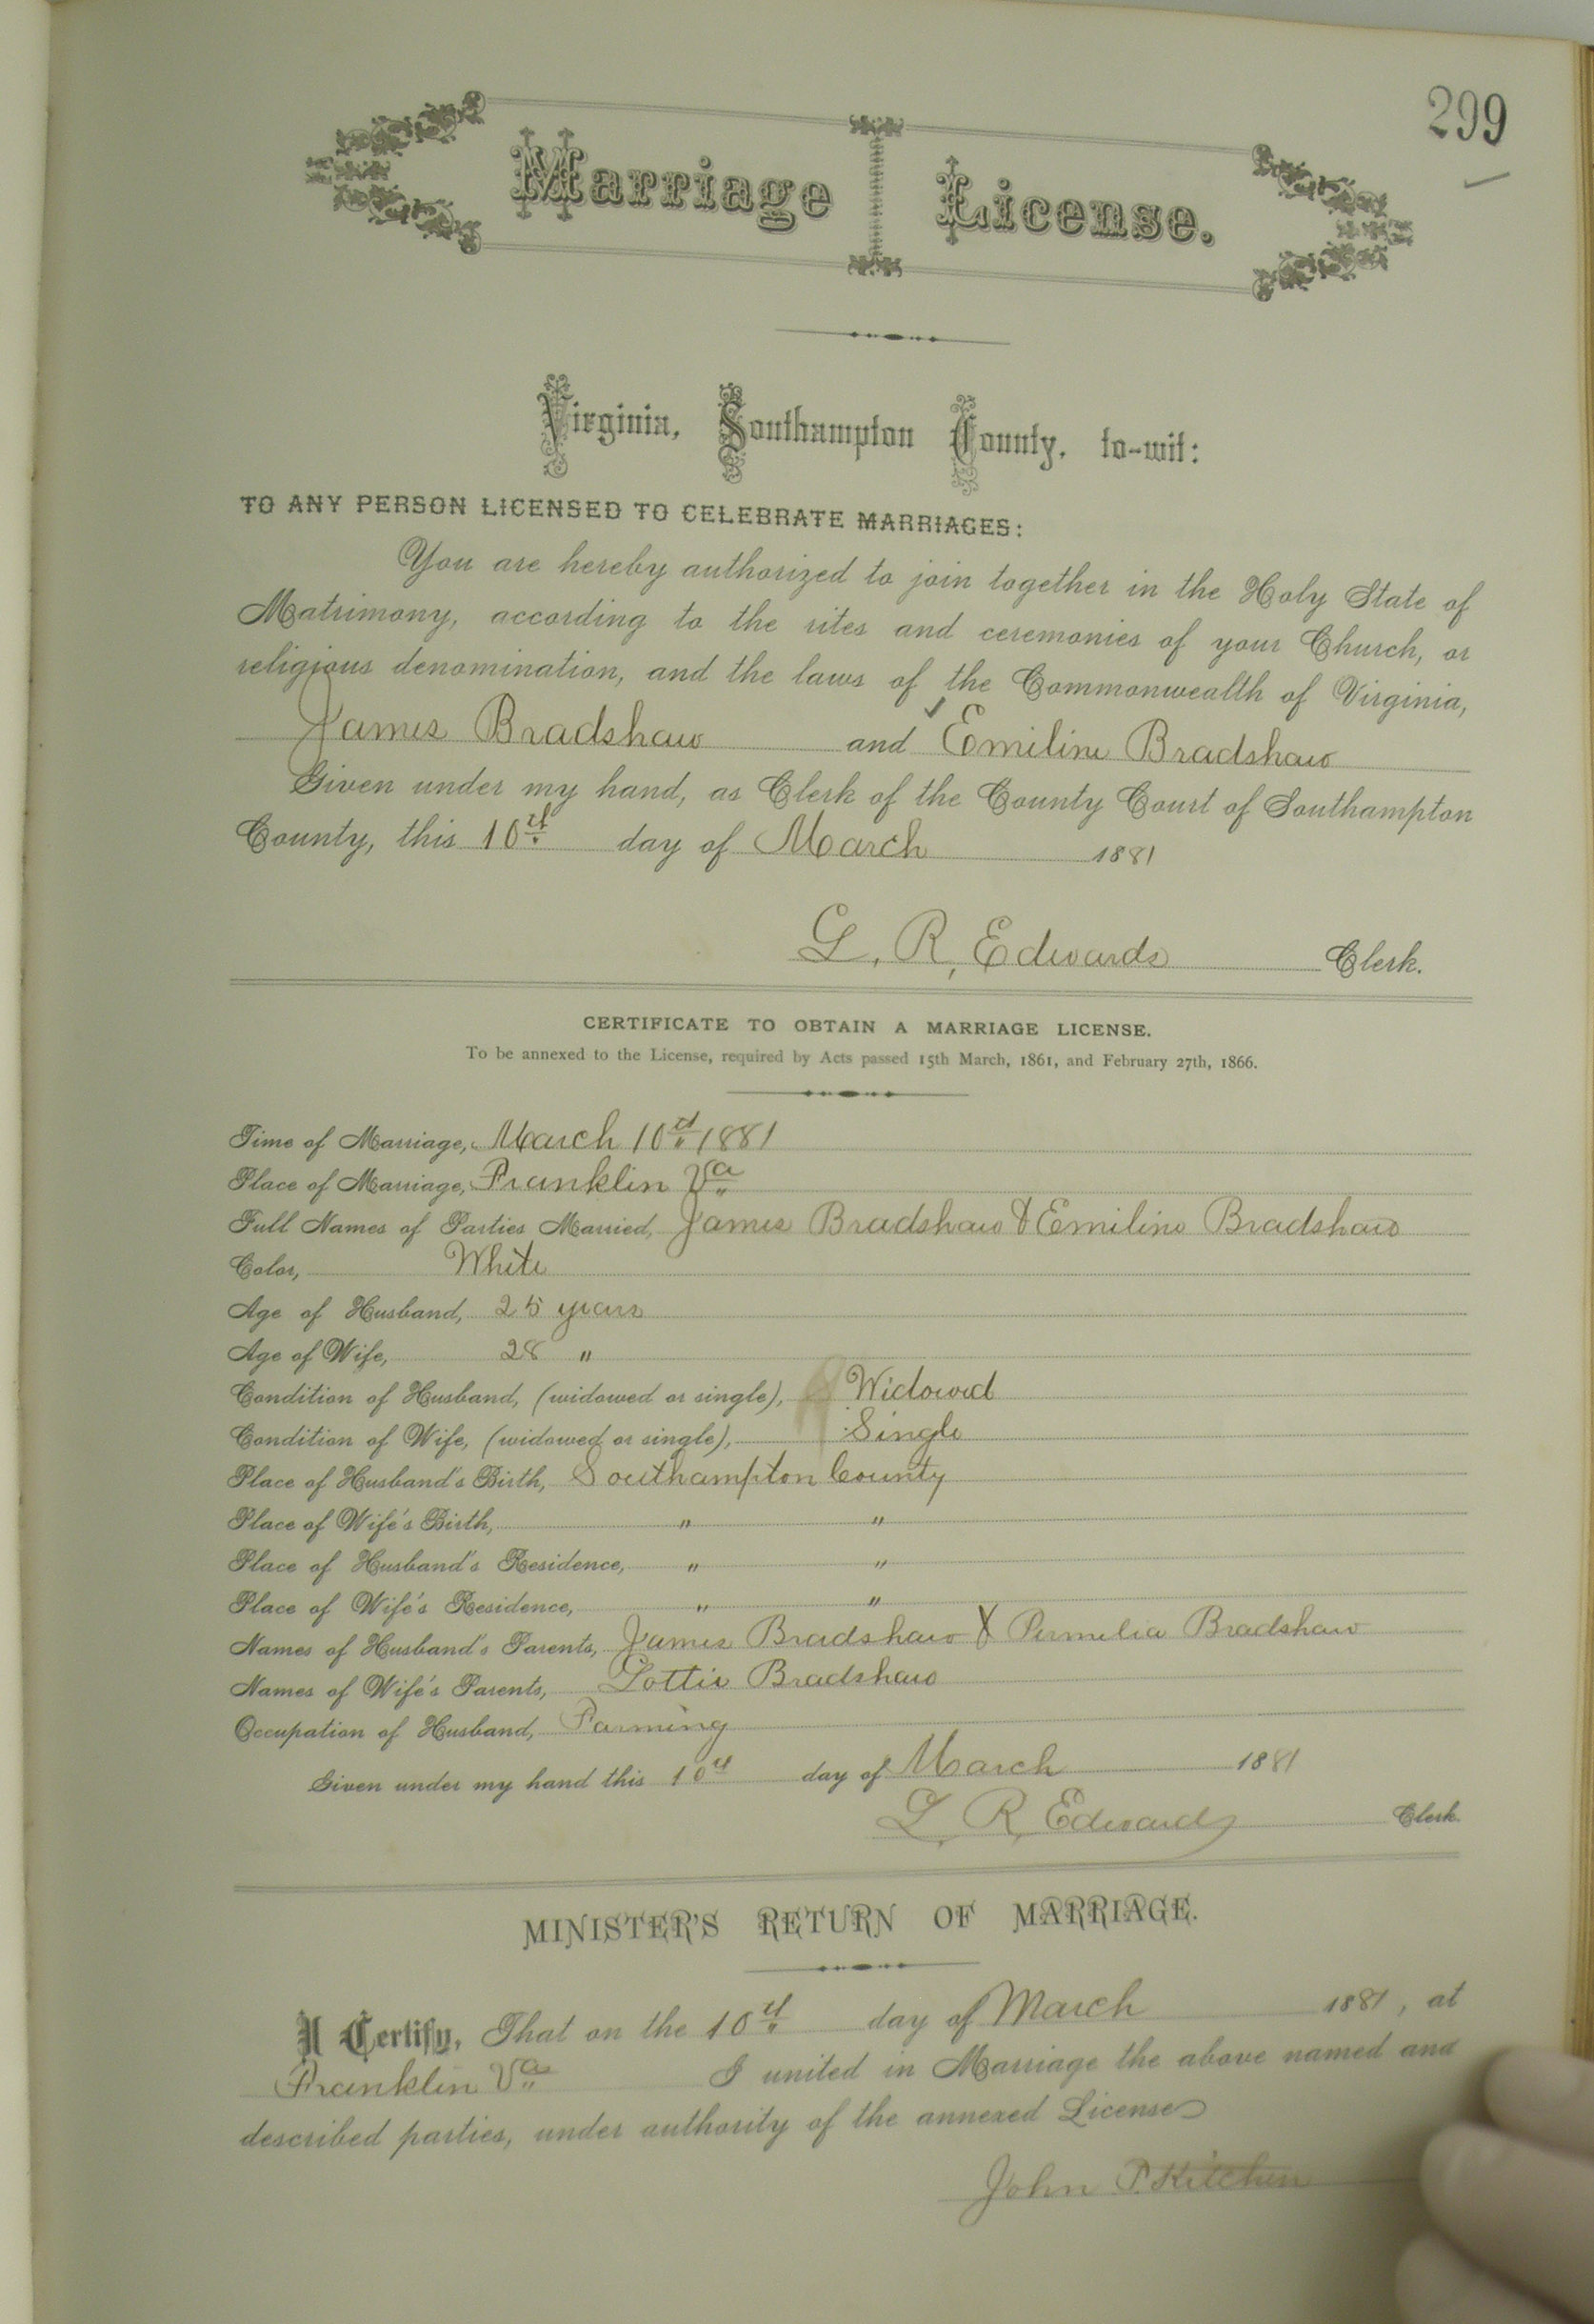 299
Marriage License.
Virginia, Southampton County, to-wit:
TO ANY PERSON LICENSED TO CELEBRATE MARRIAGES:
You are hereby authorized to join together in the Holy State of
Matrimony, according to the rites and ceremonies of your Church, or
religious denomination, and the laws of the Commonwealth of Virginia,
James Bradshaw and Emiline Bradshaw
Given under my hand, as Clerk of the County Court of Southampton
County, this 10th day of March 1881
L. R. Edwards Clerk.
CERTIFICATE TO OBTAIN A MARRIAGE LICENSE.
To be annexed to the License, required by Acts passed 15th March, 1861, and February 27th, 1866.
Time of Marriage, March 10th 1881
Place of Marriage, Franklin Va
Full Names of Parties Married, James Bradshaw & Emiline Bradshaw
Color, White
Age of Husband, 25 years
Age of Wife, 28 "
Condition of Husband, (widowed or single), Widowed
Condition of Wife, (widowed or single), Single
Place of Husband's Birth, Southampton County
Place of Wife's Birth, " "
Place of Husband's Residence, " "
Place of Wife's Residence, " "
Names of Husband's Parents, James Bradshaw & Permelia Bradshaw
Names of Wife's Parents, Lottie Bradshaw
Occupation of Husband, Farming
Given under my hand this 10th day of March 1881
L. R. Edwards Clerk.
MINISTER'S RETURN OF MARRIAGE.
I Certify, That on the 10th day of March 1881, at
Franklin Va I united in Marriage the above named and
described parties, under authority of the annexed License
John P. Kitchen